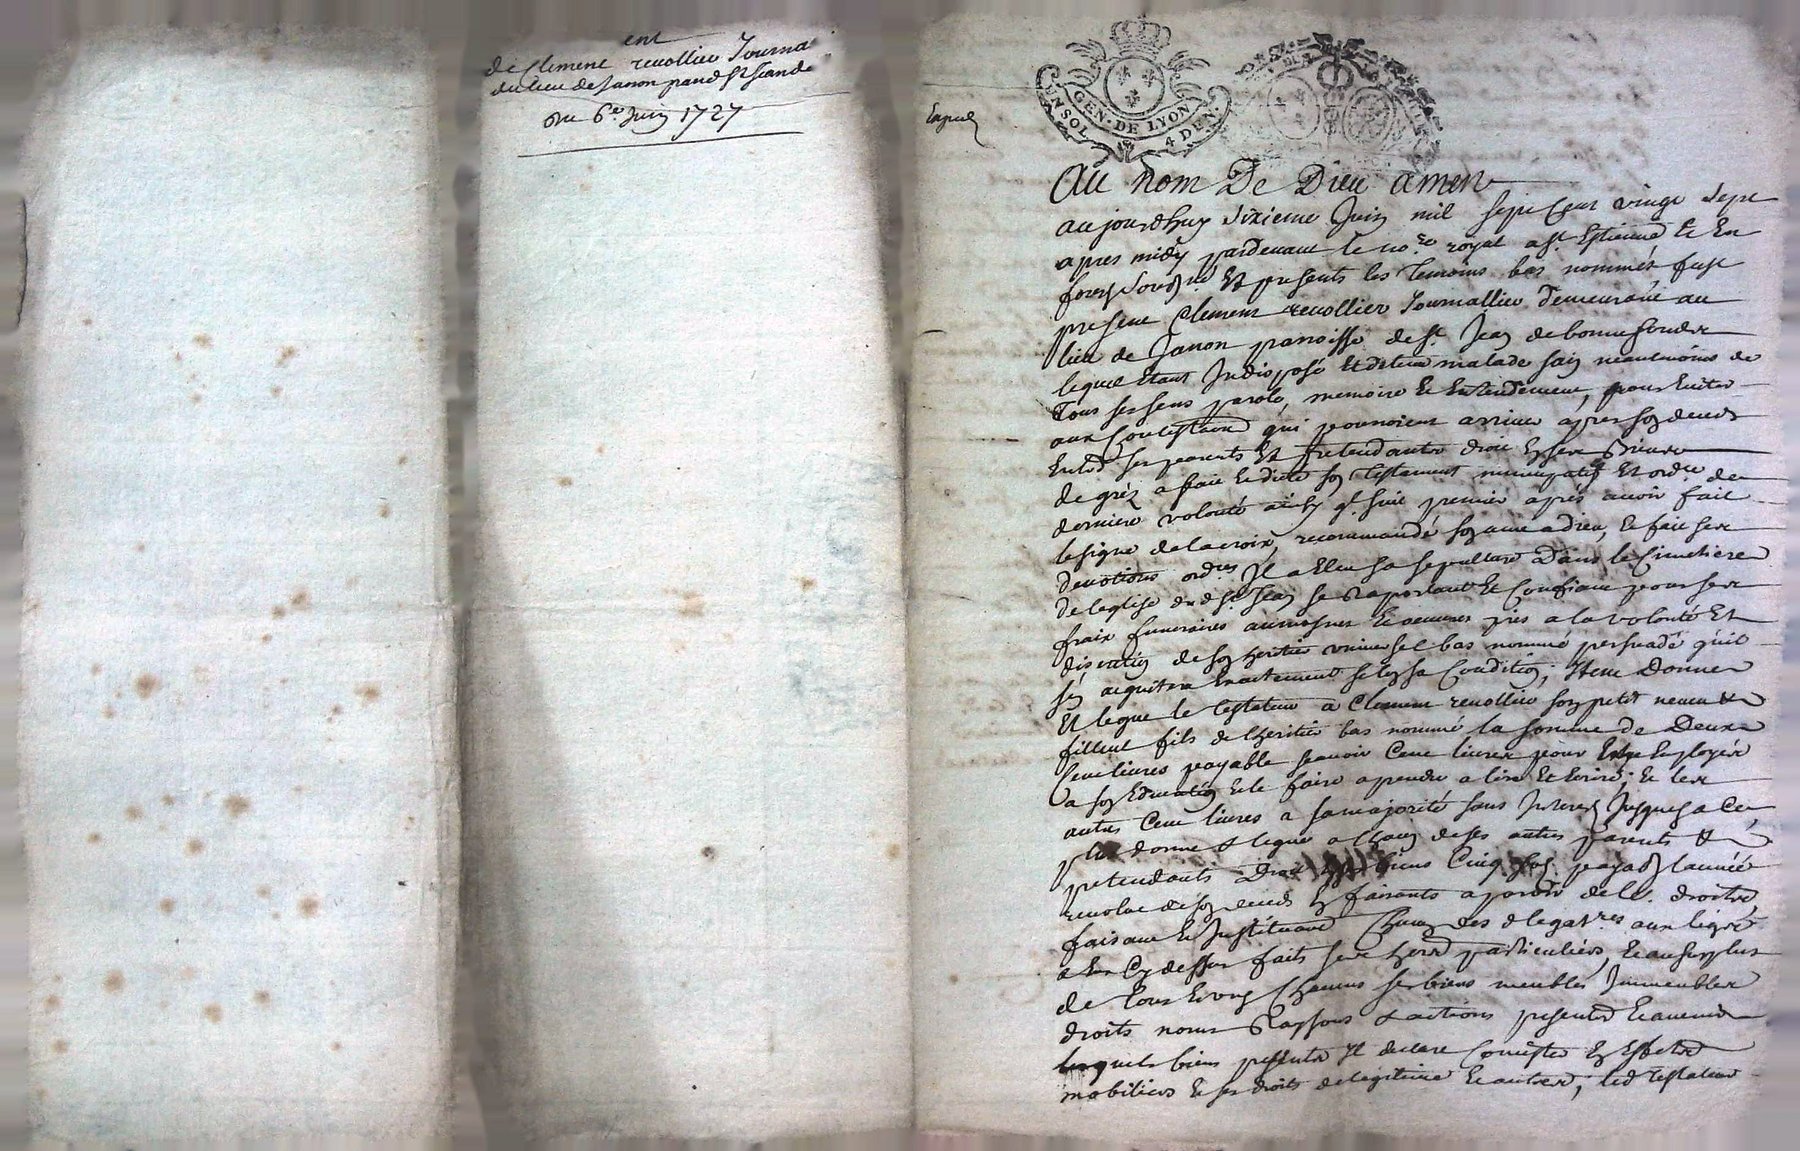 ent
de Clement revollier Journa
du lieu de Janon paroiss St Jean de
du 6e Juin 1727
GEN. DE LYON
EN SOL 4 DEN.
Au nom De Dieu amen
aujourdhuy sixieme Juin mil sept Cent vingt sept
apres midy pardevant le no.re royal a St Estienne En
forest sousne Et presents les temoins bas nommés fust
present Clement revollier Journallier demeurant au
lieu de Janon parroisse de St Jean de bonnefonds
lequel Etant Indisposé Et detenu malade sain neantmoins de
tous ses sens parole, memoire Et Entendement, pour Eviter
aux Contestaons qui pourroient arriver apres son deceds
Entre ses parents Et pretendants droit En ses biens
de gré a fait Et dicté son testament nuncupatif Et ordre de
derniere volonté ainsy q. suit premier aprés avoir fait
le signe de la croix, recommandé son ame a Dieu, Et fait ses
devotions ord.res Il a Eleu sa sepulture Dans le Cimetiere
de leglise dud St Jean se Rapportant Et Confiant pour ses
fraix funeraires aumosnes Et oeuvres pies a la volonté Et
discretion de son heritier universel bas nommé persuadé quil
sen aquitera Exactement selon sa Condition; Item Donne
Et legue le testateur a Clement revollier son petit neveu &
filleul fils de lheritier bas nommé la somme de Deux
Cent livres payable scavoir Cent livres pour Estre Employés
a son Education Et le faire aprendre a lire Et Ecrire; Et les
autres Cent livres a sa majorité sans Interest Jusques a Ce,
plus donne & legue a Chacun de ses autres parents &
pretendants Droit biens Cinq sols payables lannée
revolue de son deceds En faisants a part de Ed. droits
faisant Et Instituant Chacun des d legat.res aux legats
a Eux Cy dessus faits ses heres particuliers, Et au surplus
de tous Et uns Chacuns ses biens meubles Immeubles
droits noms Raisons & actions presents Et avenir
lesquels biens presents Il declare Consister En Effets
mobiliers Et ses droits de legitime Et autres; led testateur